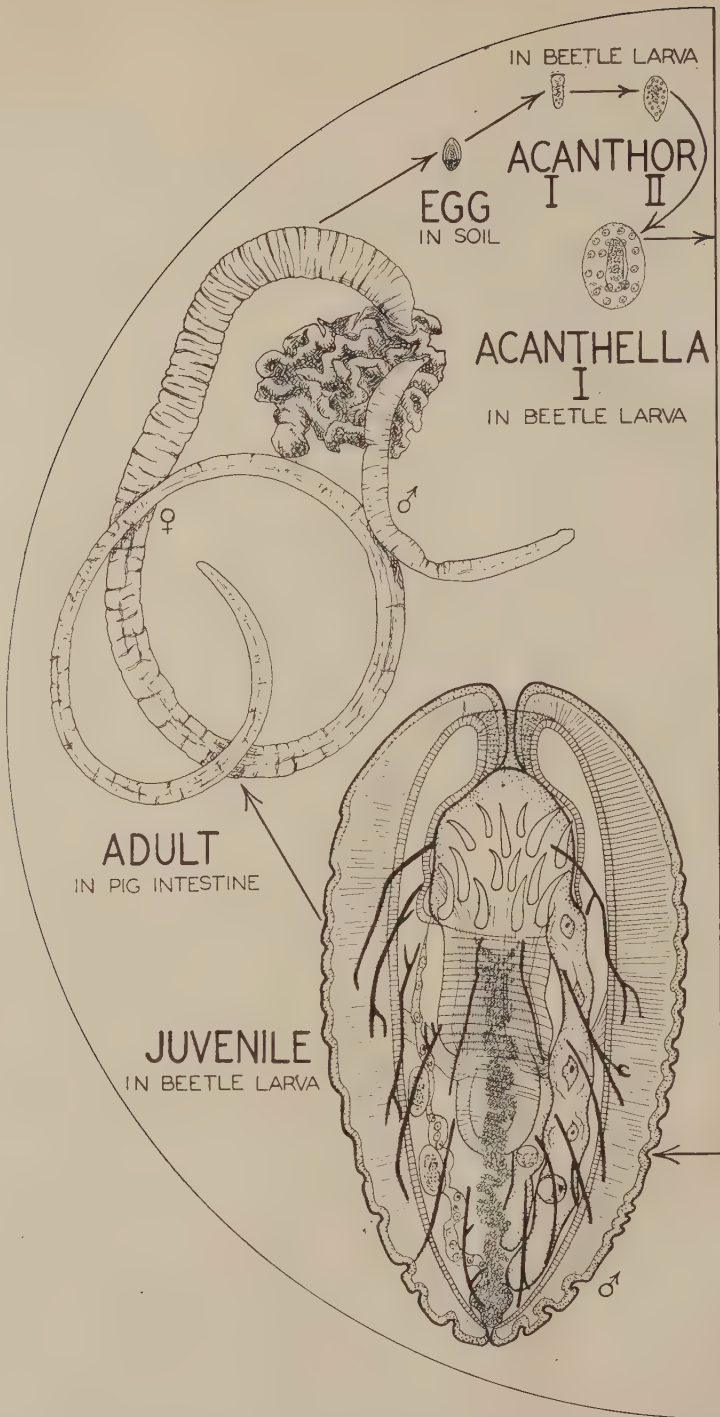 IN BEETLE LARVA
ACANTHOR
I II
EGG
IN SOIL
ACANTHELLA
I
IN BEETLE LARVA
♀
♂
ADULT
IN PIG INTESTINE
JUVENILE
IN BEETLE LARVA
♂